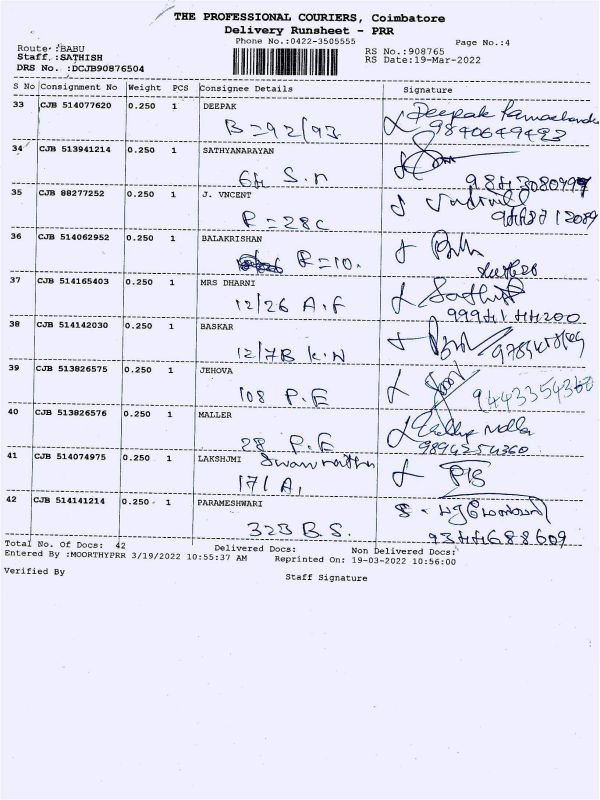 THE PROFESSIONAL COURIERS, Coimbatore
Delivery Runsheet - PRR
Phone No.:0422-3505555 Page No.:4
Route :BABU RS No.:908765
Staff :SATHISH RS Date:19-Mar-2022
DRS No. :DCJB90876504
S No Consignment No Weight PCS Consignee Details Signature
33 CJB 514077620 0.250 1 DEEPAK Deepak
B=92/93. 9840649493
34 CJB 513941214 0.250 1 SATHYANARAYAN
64 S.n
35 CJB 88277252 0.250 1 J. VNCENT
R=28c
36 CJB 514062952 0.250 1 BALAKRISHAN
R=10.
37 CJB 514165403 0.250 1 MRS DHARNI Sathish
12/26 A.F 9994144200
38 CJB 514142030 0.250 1 BASKAR
12/7B K.N
39 CJB 513826575 0.250 1 JEHOVA
108 P.E 9443354360
40 CJB 513826576 0.250 1 MALLER
28 P.E 9894254360
41 CJB 514074975 0.250 1 LAKSHJMI
171 A,
42 CJB 514141214 0.250 1 PARAMESHWARI
32B B.S. 9344688609
Total No. Of Docs: 42 Delivered Docs: Non Delivered Docs:
Entered By :MOORTHYPRR 3/19/2022 10:55:37 AM Reprinted On: 19-03-2022 10:56:00
Verified By Staff Signature